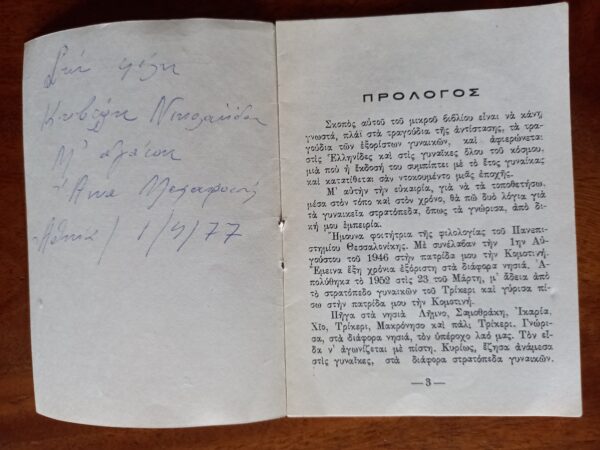 Στη φίλη
Νικολαΐδου
Μ' αγάπη
Αθήνα / 1/4/77
ΠΡΟΛΟΓΟΣ
Σκοπὸς αὐτοῦ τοῦ μικροῦ βιβλίου εἶναι νὰ κάνῃ
γνωστά, πλάϊ στὰ τραγούδια τῆς ἀντίστασης, τὰ τρα-
γούδια τῶν ἐξορίστων γυναικῶν, καὶ ἀφιερώνεται
στὶς Ἑλληνίδες καὶ στὶς γυναῖκες ὅλου τοῦ κόσμου,
μιὰ ποὺ ἡ ἔκδοσή του συμπίπτει μὲ τὸ ἔτος γυναίκας
καὶ κατατίθεται σὰν ντοκουμέντο μιᾶς ἐποχῆς.
Μ' αὐτὴν τὴν εὐκαιρία, γιὰ νὰ τὰ τοποθετήσω,
μέσα στὸν τόπο καὶ στὸν χρόνο, θὰ πῶ δυὸ λόγια γιὰ
τὰ γυναικεῖα στρατόπεδα, ὅπως τὰ γνώρισα, ἀπὸ δι-
κή μου ἐμπειρία.
Ἤμουνα φοιτήτρια τῆς φιλολογίας τοῦ Πανεπι-
στημίου Θεσσαλονίκης. Μὲ συνέλαβαν τὴν 1ην Αὐ-
γούστου τοῦ 1946 στὴν πατρίδα μου τὴν Κομοτινή.
Ἔμεινα ἕξη χρόνια ἐξόριστη στὰ διάφορα νησιά. Ἀ-
πολύθηκα τὸ 1952 στὶς 23 τοῦ Μάρτη, μ' ἄδεια ἀπὸ
τὸ στρατόπεδο γυναικῶν τοῦ Τρίκερι καὶ γύρισα πί-
σω στὴν πατρίδα μου τὴν Κομοτινή.
Πῆγα στὰ νησιὰ Λῆμνο, Σαμοθράκη, Ἰκαρία,
Χίο, Τρίκερι, Μακρόνησο καὶ πάλι Τρίκερι. Γνώρι-
σα, στὰ διάφορα νησιά, τὸν ὑπέροχο λαό μας. Τὸν εἶ-
δα ν' ἀγωνίζεται μὲ πίστη. Κυρίως, ἔζησα ἀνάμεσα
στὶς γυναῖκες, στὰ διάφορα στρατόπεδα γυναικῶν.
— 3 —